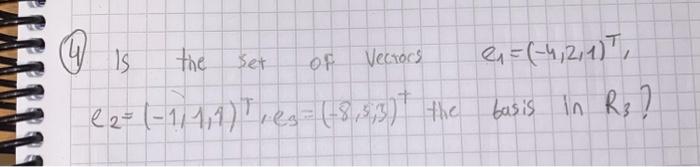 4 Is the set of vectors e₁=(-4,2,1)ᵀ,
e₂=(-1,1,1)ᵀ, e₃=(-8,5,3)ᵀ the basis in R₃?